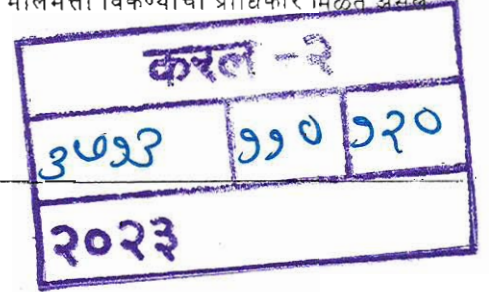 मालमत्ता विकण्याचा प्राधिकार मिळत असेल
करल - २
३७१३ ११० १२०
२०२३